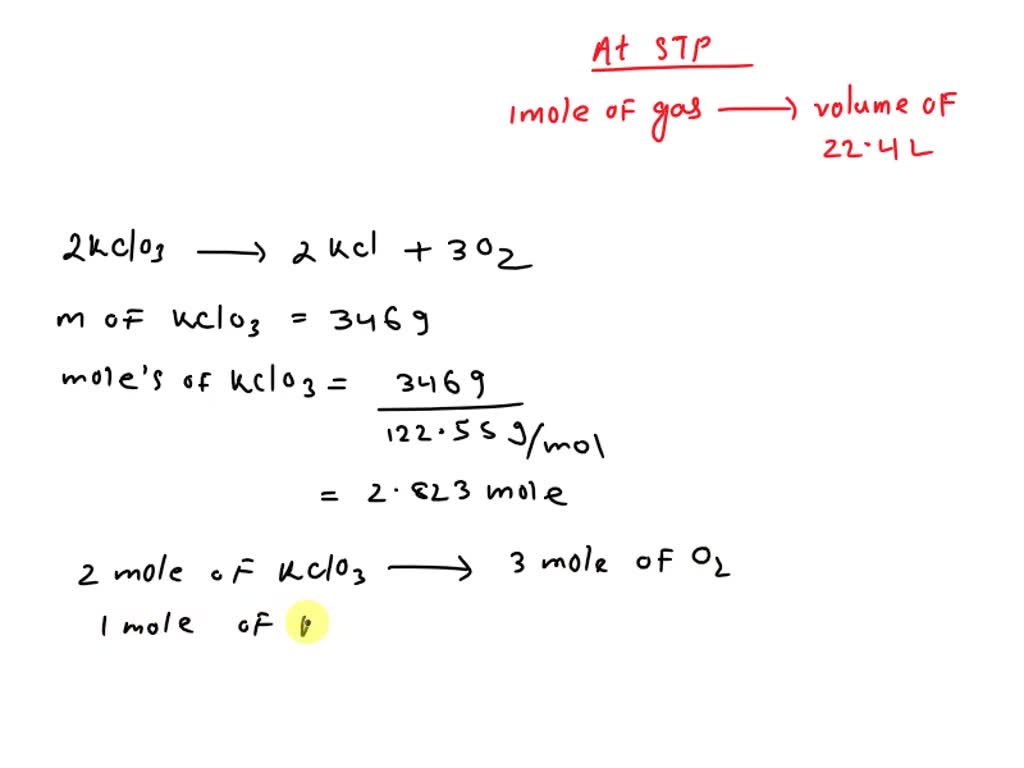 At STP
1 mole of gas ⟶ volume of
22.4 L
2KClO3 ⟶ 2KCl + 3O2
m of KClO3 = 346 g
mole's of KClO3 = 346 g
122.55 g/mol
= 2.823 mole
2 mole of KClO3 ⟶ 3 mole of O2
1 mole of